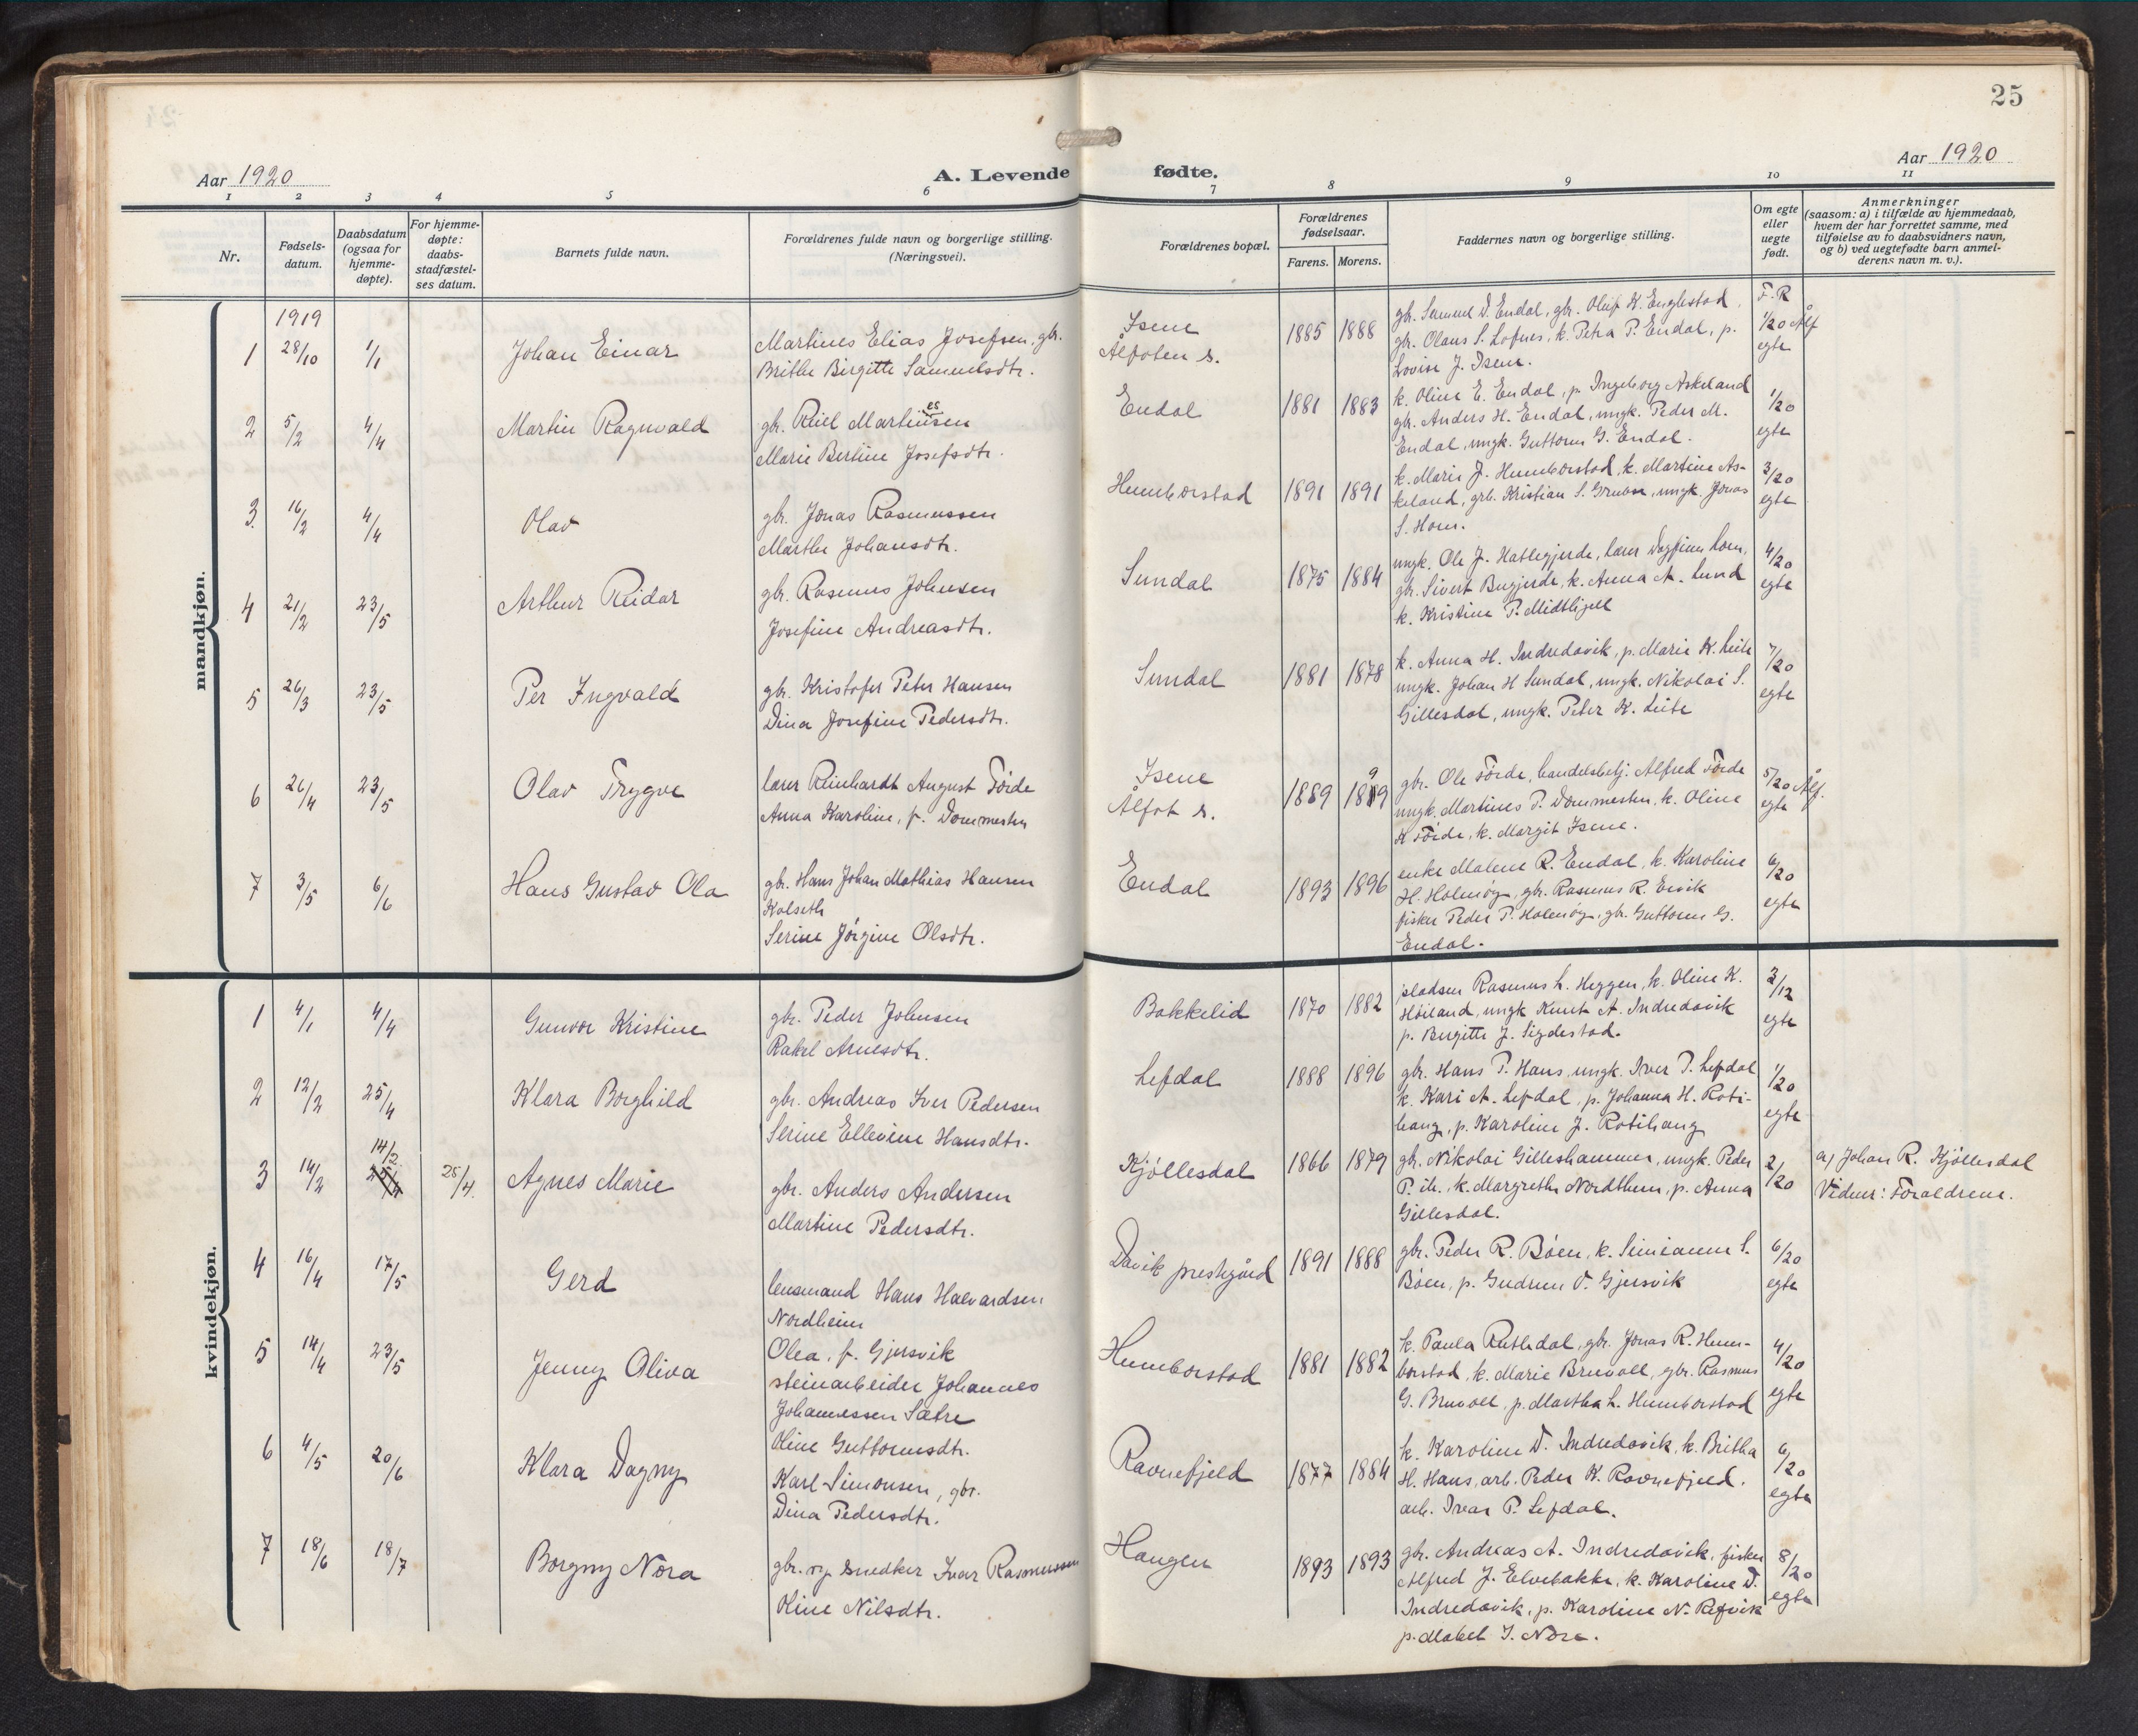 25
Aar 1920
A. Levende
fødte.
Aar 1920
1 2 3 4 5 6 7 8 9 10 11
Nr.
Fødsels-
datum.
Daabsdatum
(ogsaa for
hjemme-
døpte).
For hjemme-
døpte:
daabs-
stadfæstel-
ses datum.
Barnets fulde navn.
Forældrenes fulde navn og borgerlige stilling.
(Næringsvei).
Forældrenes bopæl.
Forældrenes
fødselsaar.
Farens. Morens.
Faddernes navn og borgerlige stilling.
Om egte
eller
uegte
født.
Anmerkninger
(saasom: a) i tilfælde av hjemmedaab,
hvem der har forrettet samme, med
tilføielse av to daabsvidners navn,
og b) ved uegtefødte barn anmel-
derens navn m. v.).
mandkjøn.
1919
1 28/10 1/1 Johan Einar
Martines Elias Josefsen, gbr.
Brithe Birgitte Samuelsdtr.
Isene
Ålfoten s.
1885 1888
gbr. Samuel D. Endal, gbr. Oluf K. Englestad,
gbr. Olaus S. Lofnes, k. Petra P. Endal, p.
Lovise J. Isene.
F. R
1/20 Ålf
egte
2 5/2 4/4 Martin Ragnvald
gbr. Kiel Martinesen
Marie Bertine Josefsdtr.
Endal
1881 1883
k. Oline E. Endal, p. Ingeborg Askeland
gbr. Anders H. Endal, ungk. Peder M.
Endal, ungk. Guttorm G. Endal.
1/20
egte
3. 16/2 4/4 Olav
gbr. Jonas Rasmussen
Marthe Johansdtr.
Humborstad
1891 1891
k. Marie J. Humborstad, k. Martine As-
keland, grb. Kristian S. , ungk. Jonas
S. Horn.
3/20
egte
4 21/2 23/5 Arthur Reidar
gbr. Rasmus Johnsen
Josefine Andreasdtr.
Sundal
1875 1884
ungk. Ole J. Hatlegjerde, lærer Dagfinn
gbr. Sivert Bugjerde, k. Anna A. Lund
k. Kristine P. Midthjell
4/20
egte
5 26/3 23/5 Per Ingvald
gbr. Kristofer Peter Hansen
Dina Josefine Pedersdtr.
Sundal
1881 1878
k. Anna H. Indredavik, p. Marie K. Leite
ungk. Johan H Sundal, ungk. Nikolai S.
Gillesdal, ungk. Peter K. Leite
7/20
egte
6 26/4 23/5 Olav Trygve
lærer Reinhardt August Förde
Anna Karoline, f. Dommesten
Isene
Ålfot s.
1889 1899
gbr. Ole Förde, handelsbetj. Alfred Förde
ungk. Martines P. Dommesten, k. Oline
K Förde, k. Margit Isene.
5/20 Ålf.
egte
7 3/5 6/6 Hans Gustav Ola
gbr. Hans Johan Mathias Hansen
Kolseth
Serine Jörgine Olsdtr.
Endal
1893 1896
enke Malene R. Endal, k. Karoline
H. Holmöy, gbr. Rasmus R. Eivik
fisker Peder P. Holmöy, gbr. Guttorm G.
Endal.
6/20
egte
kvindekjøn.
1 4/1 4/4 Gunvor Kristine
gbr. Peder Johnsen
Rakel Arnesdtr.
Bakkelid
1870 1882
pladsm Rasmus L. Heggen, k. Oline K.
Höiland, ungk Knut A. Indredavik
p. Bergitte J. Sigdestad.
3/12
egte
2 12/2 25/4 Klara Borghild
gbr. Andreas Iver Pedersen
Serine Ellevine Hansdtr.
Lefdal
1888 1896
gbr. Hans P. Haus, ungk. Iver P. Lefdal
k. Kari A. Lefdal, p. Johanna H. Roti-
haug, p. Karoline J. Rotihaug
1/20
egte
3 14/2 14/2 25/4 25/4. Agnes Marie
gbr. Anders Andersen
Martine Pedersdtr.
Kjöllesdal
1866 1879
gbr. Nikolai Gilleshammer, ungk. Peder
P. ib., k. Margrethe Nordthun, p. Anna
Gillesdal.
2/20
a) Johan R. Kjöllesdal
Vidner: Foraldrene.
4 16/4 17/5 Gerd
lensmand Hans Halvardsen
Nordheim
Olea, f. Gjersvik
Davik prestgård
1891 1888
gbr. Peder R. Böen, k. Simianna S.
Böen, p. Gudrun O. Gjersvik
6/20
egte
5 14/4 23/5 Jenny Oliva
steinarbeider Johannes
Johannessen Sætre
Oline Guttormsdtr.
Humborstad
1881 1882
k. Paula Rutledal, gbr. Jonas R. Hum-
borstad, k. Marie Bruvoll, gbr. Rasmus
G. Bruvoll, p. Martha L. Humborstad
4/20
egte
6 4/5 20/6 Klara Dagny
Karl Simonsen, gbr.
Dina Pedersdtr.
Ravnefjeld
1877 1884
k. Karoline D. Indredavik, k. Britha
H. Haus, arb. Peder K. Ravnefjeld.
arb. Ivar P. Lefdal.
6/20
egte
7 18/6 18/7 Borgny Nora
gbr. og snedker Ivar Rasmussen
Oline Nilsdtr.
Haugen
1893 1893
gbr. Andreas A. Indredavik, fisker
Alfred J. Elvebakke, k. Karoline D.
Indredavik, p. Karoline N. Refvik
p. Mabel I. Nore.
8/20
egte